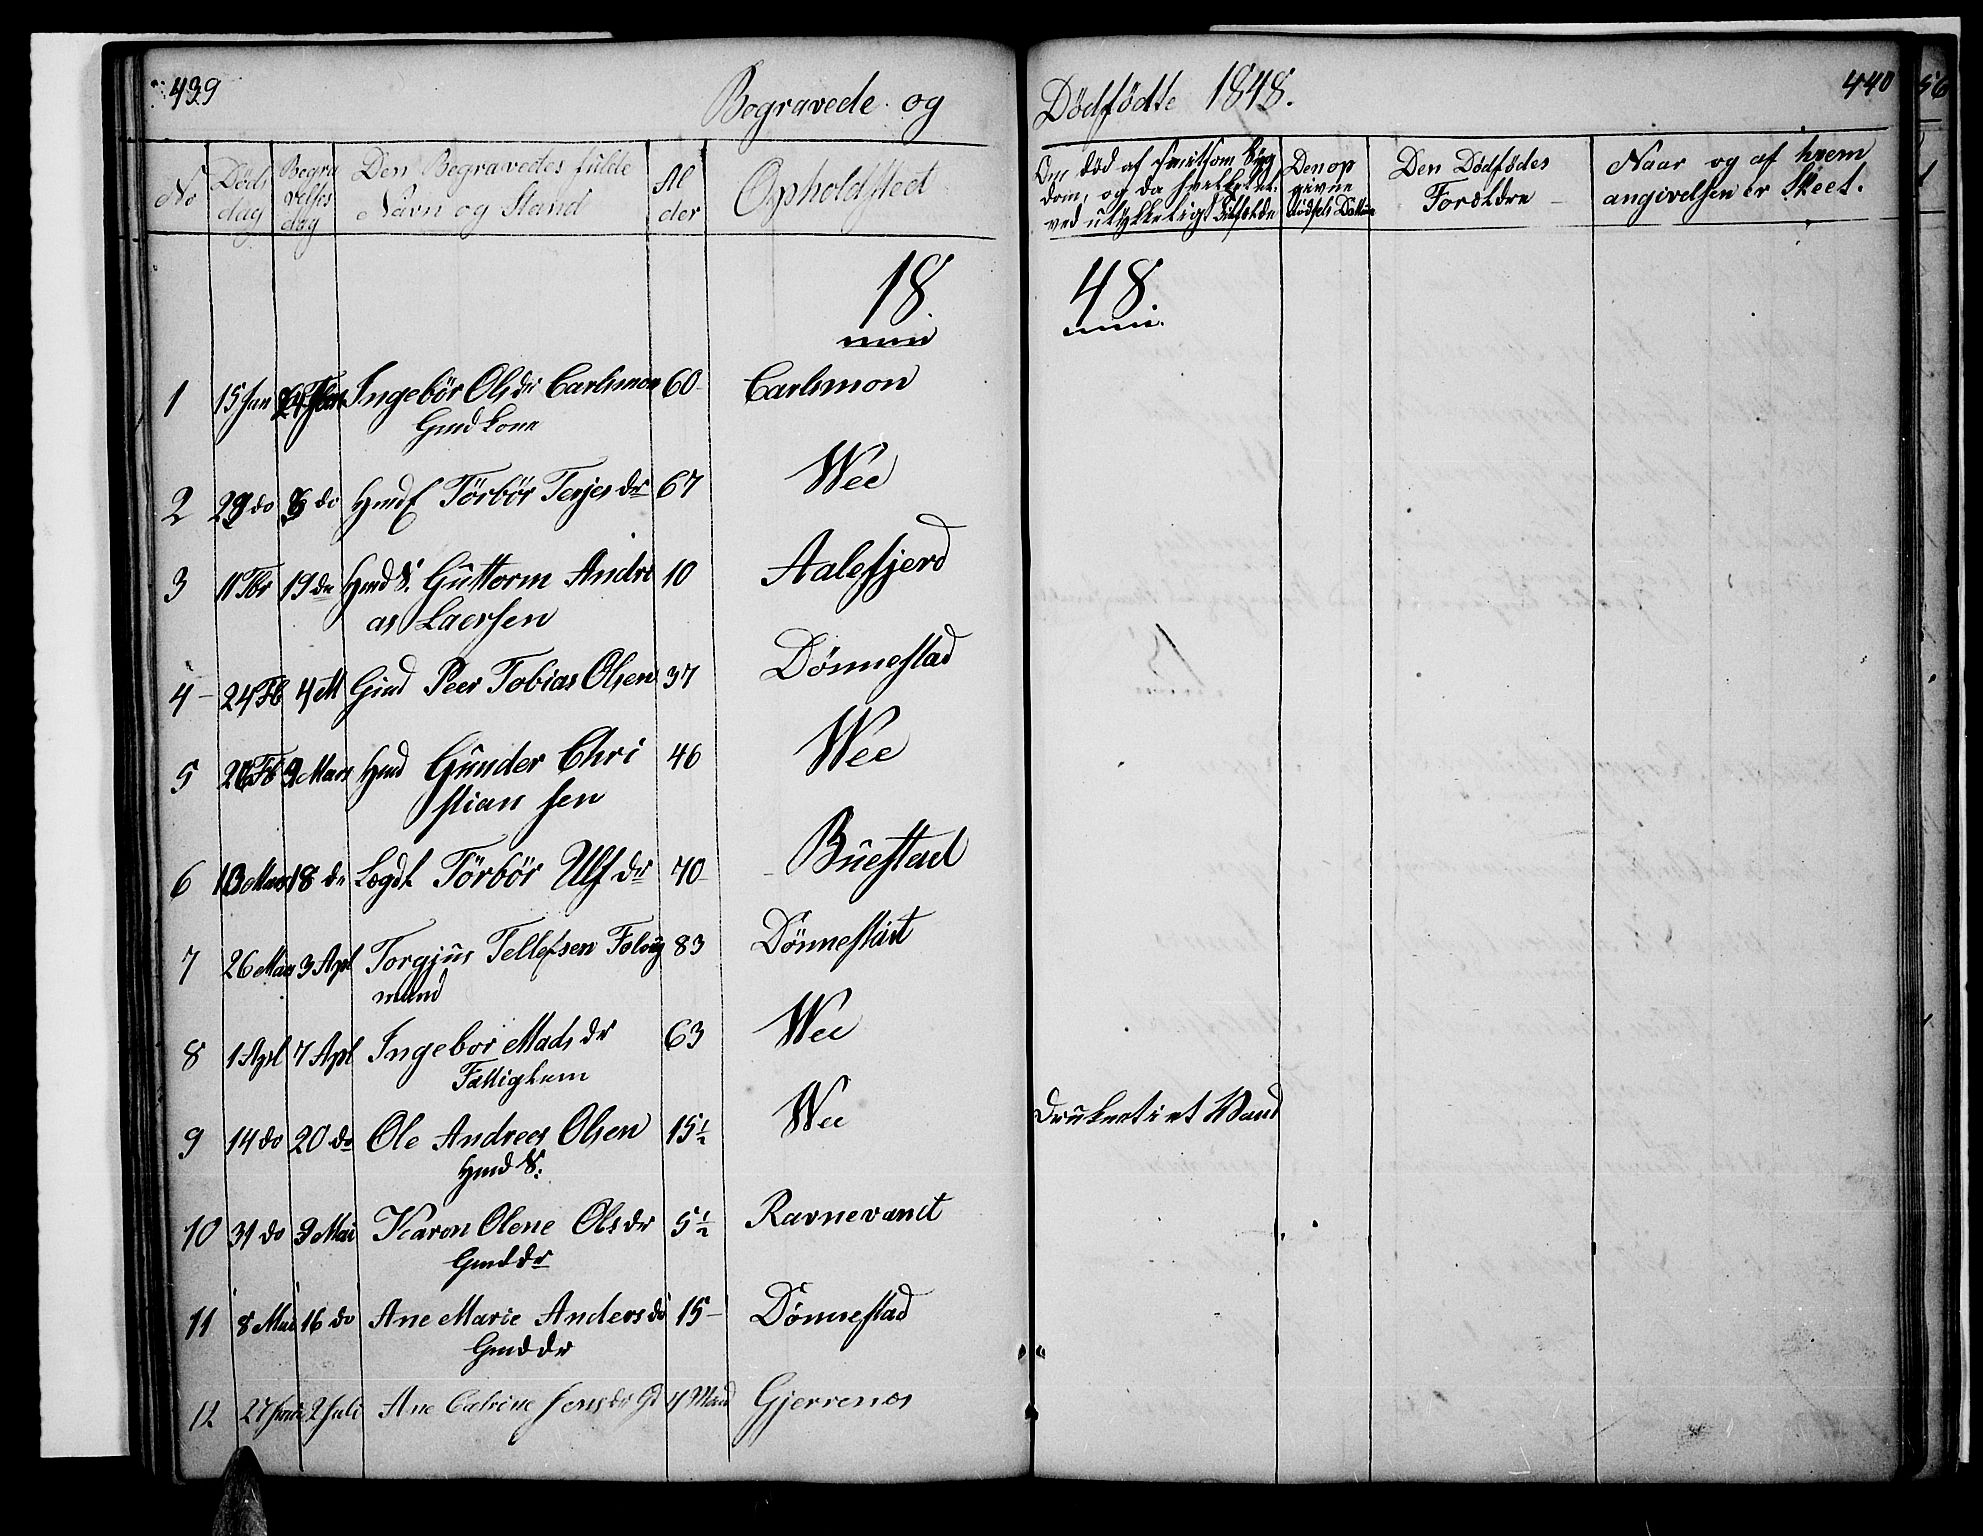 439
Begravede og
Dödfödte 1848.
440
56
No
Döds
dag
Begra
velses
dag
Den Begravedes fulde
Navn og Stand
Al
der
Opholdsteet
Om död af smitsom Syg
dom, og da hvilken
ved ulykkeligt Tilfælde
Den op
givne
Dödsels
Den Dödfödes
Foræl​dre
Naar og af hvem
angivelsen er Skeet.
18
48.
1 15 Jan Ingebör Olsdr Carlsmon 60 Carlsmon
Gmd kone
2 29 do 8 do Hmd Törbör Terjesdr 67 Wee
3 11 Fbr 19 do Hmd S. Guttorm Andre 10 Aalefjerd
as Laersen
4 - 24 Fb 4 M Gmd Peer Tobias Olsen 37 Dönnestad
5 26 Fb 9 Mars Hmd Gunder Chri 46 Wee
stiansen
6 13 Mars 18 do Lægdl Törbör Ulfdr 70 Buestad
7 26 Mars 3 Apl Torgjus Tellefsen 83 Dönnestad
mand
8 1 Apl 7 Apl Ingebor Madsdr 63 Wee
Fattiglem
9 14 do 20 do Ole Andreas Olsen 15 1/2 Wee Druknet i et Vand
Hmd S.
10 31 do 9 Mai Karon Olene Olsdr 5 1/2 Ravnevand
Gmd dr
11 8 Mai 16 do Ane Marie Andersdr 15 - Dönnestad
Gmd dr
12 27 Juni 2 Juli Ane Catrine Jensdr Gd 4 Mand Gjerrenes